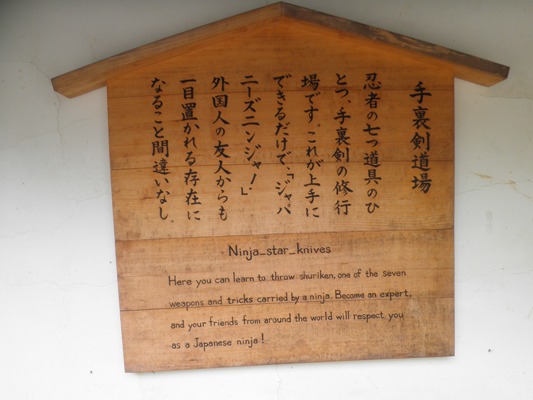 手裏剣道場
忍者の七つ道具のひ
とつ、手裏剣の修行
場です。これが上手に
できるだけで、「ジャパ
ニーズニンジャー！」
外国人の友人からも
一目置かれる存在に
なること間違いなし
Ninja_star_knives
Here you can learn to throw shuriken, one of the seven
weapons and tricks carried by a ninja. Become an expert,
and your friends from around the world will respect you
as a Japanese ninja!